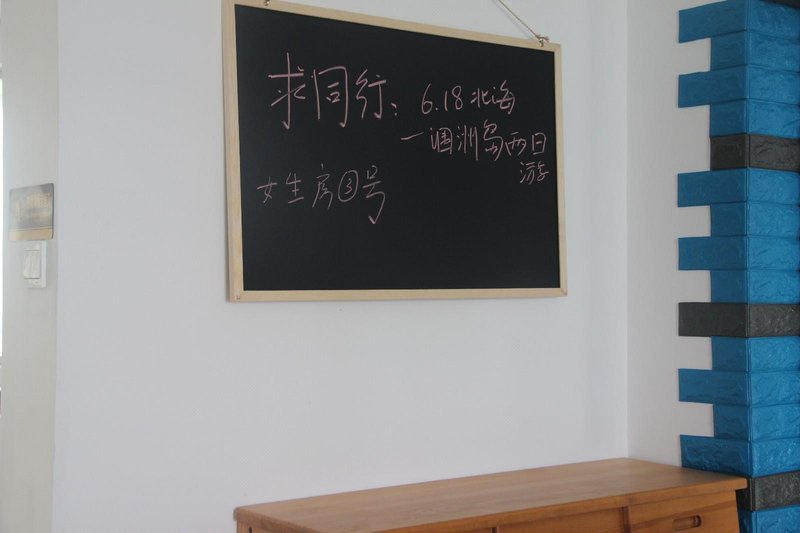 求同行: 6.18北海
一涠洲岛两日
游
女生房③号